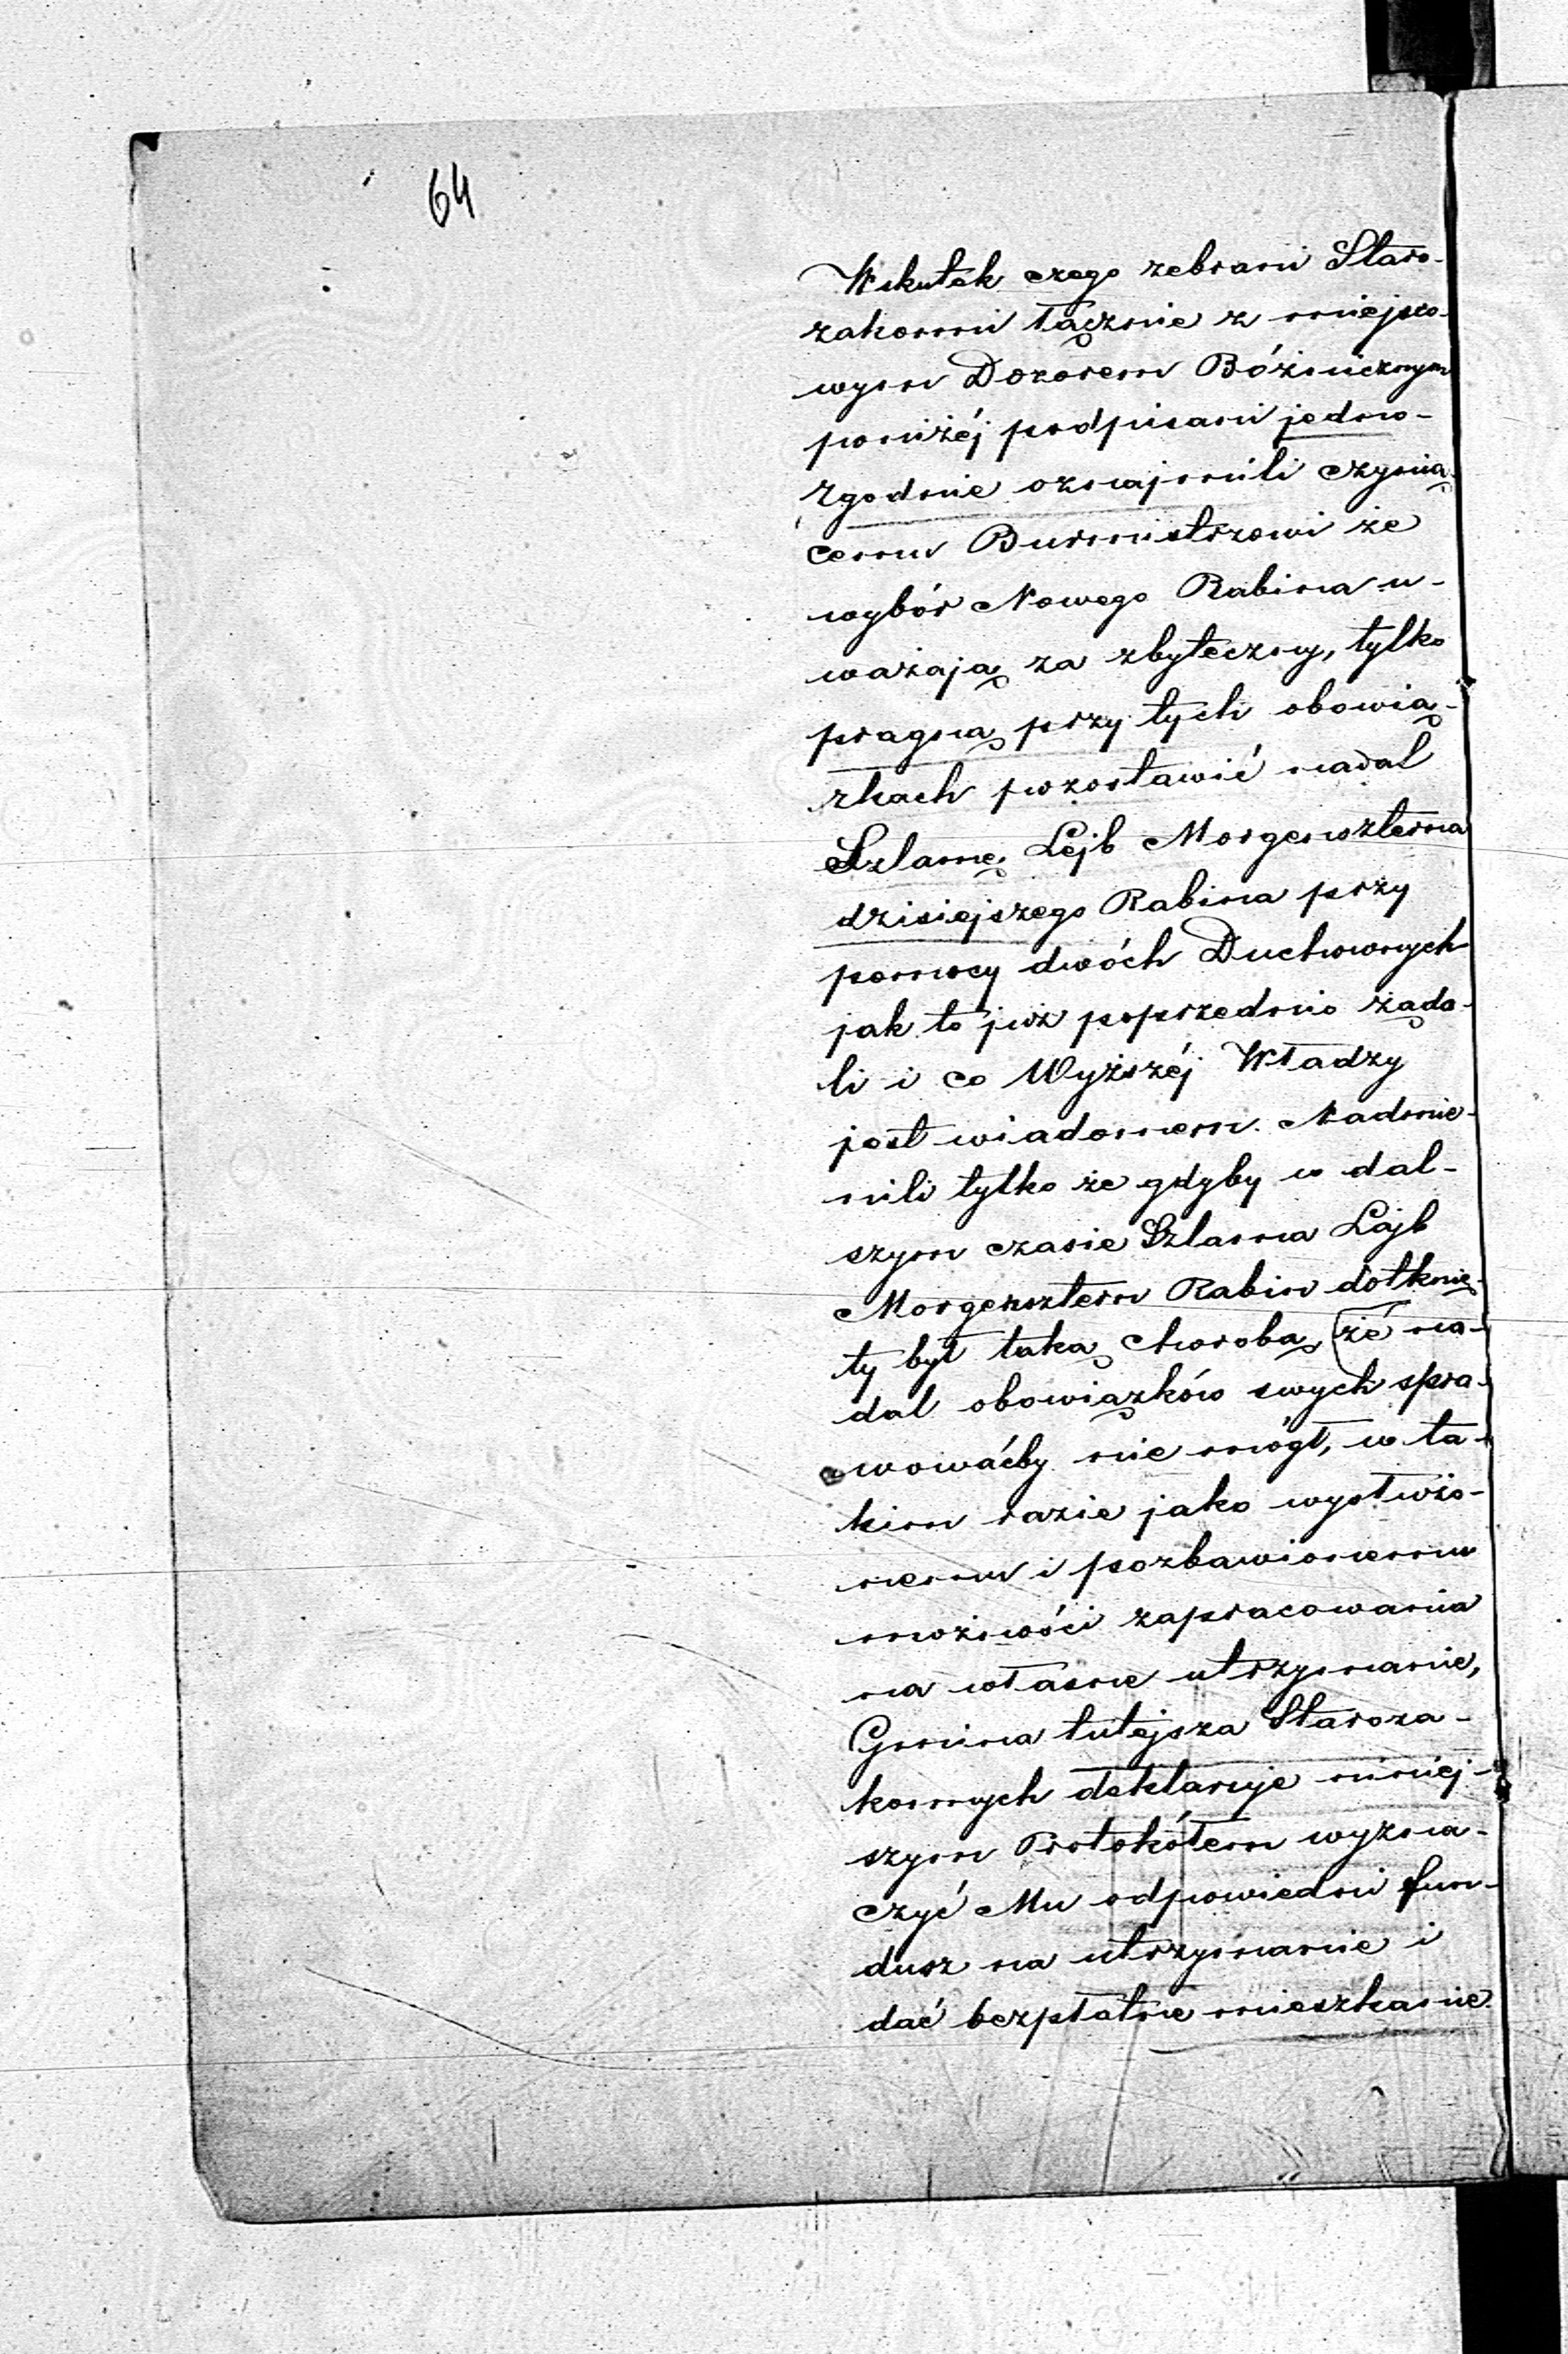 64
Wskutek czego zebrani Staro-
zakonni łącznie z miejsco-
wym Dozorem Bóżnicznym
poniżéj podpisani jedno-
zgodnie oznajmili czynią-
cemu Burmistrzowi że
wybór Nowego Rabina u-
ważają za zbyteczny, tylko
pragną przy tych obowią-
zkach pozostawić nadal
Szlamę Lejb Morgenszterna
dzisiejszego Rabina przy
pomocy dwóch Duchownych
jak to już poprzednio żąda-
li i co Wyższéj Władzy
jest wiadomem. Nadmie-
nili tylko że gdyby w dal-
szym czasie Szlama Lajb
Morgensztern Rabin dotknię-
ty był taką chorobą, że na-
dal obowiązków swych spra-
wowaćby nie mógł, w ta-
kim razie jako wysłużo-
nemu i pozbawionemu
możności zapracowania
na własne utrzymanie,
Gmina tutejsza Staroza-
konnych deklaruje niniej-
szym Protokółem wyzna-
czyć Mu odpowiedni fun-
dusz na utrzymanie i
dać bezpłatne mieszkanie.